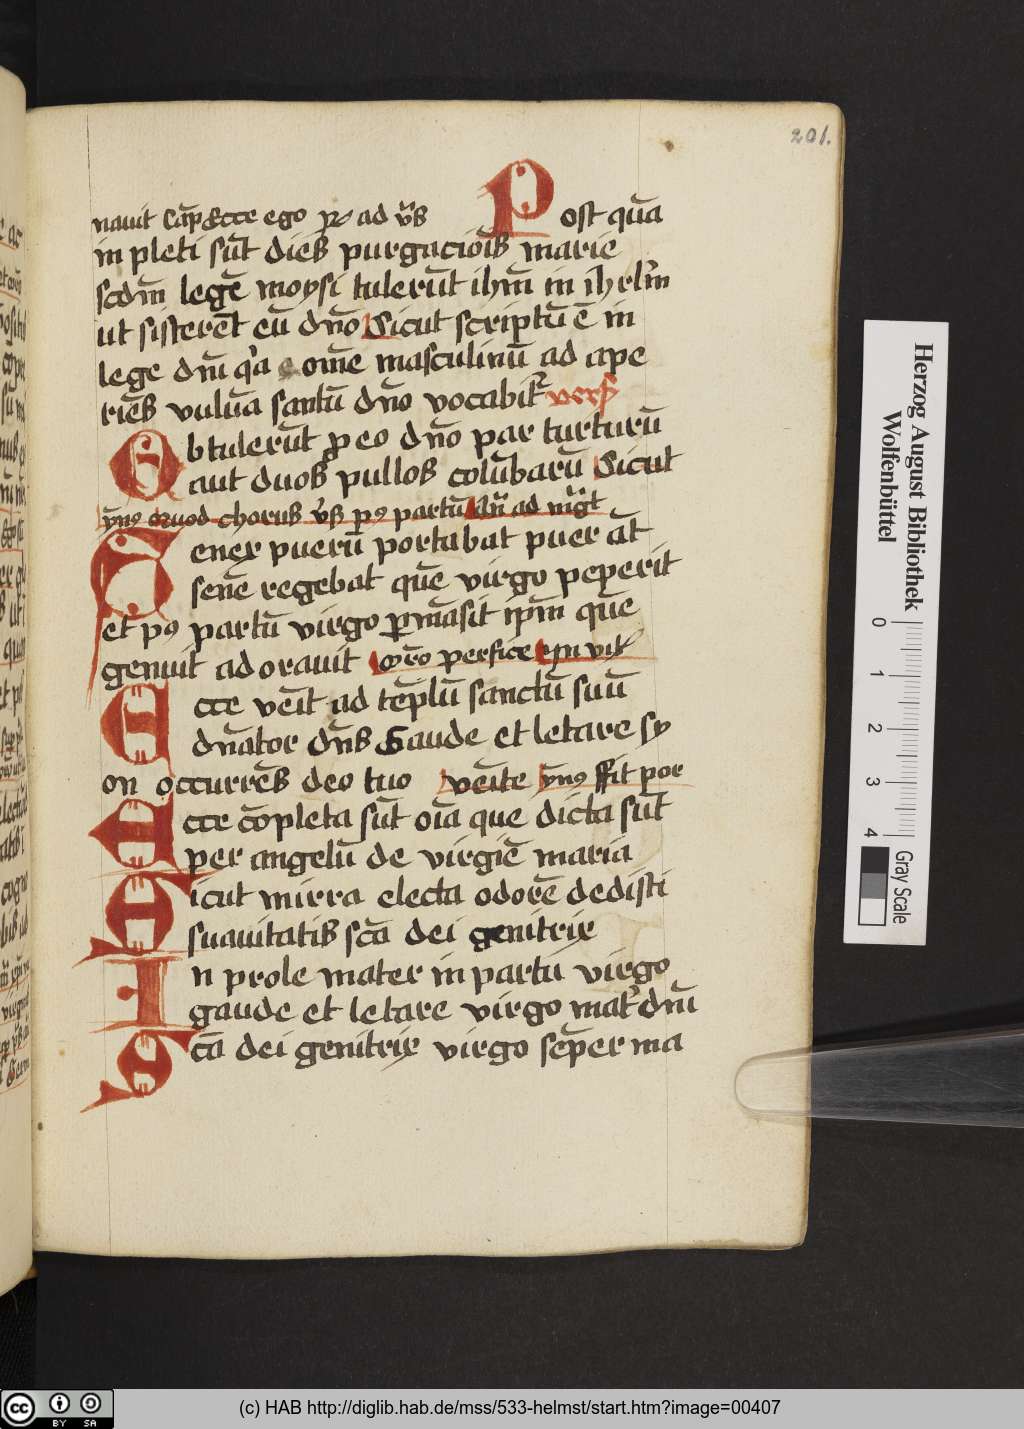 201.
nauit Cap̄ Ecce ego ad v̄s Post quā
in pleti sūt dies purgaciōis marie
scdm̄ legē moysi tulerūt ihm̄ in ihrlm̄
ut sisterēt eū dn̄o Sicut scriptū ē in
lege dn̄i qꝛa ome masculinū ad ape
riēs vulūa sanctū dn̄o vocabit᷑ vers
Obtulerūt ꝓ eo dn̄o par turturū
aut duos pullos colūbarū Sicut
ymꝰ Quod chorus v̄s pꝰ partū an̄ ad
Senex puerū portabat puer āt
senē regebat quē virgo peperit
et pꝰ partū virgo ꝑmāsit ip̄m quē
genuit adorauit perfice In
Ecce veīt ad tēplū sanctū suū
dn̄ator dn̄s Gaude et letare sy
on occurrēs deo tuo veīte ymꝰ ffit por
Ecce cōpleta sūt oīa que dicta sūt
per angelū de virgīe maria
Sicut mirra electa odorē dedisti
suauitatis scā dei genitrix
In prole mater in partu virgo
gaude et letare virgo mat᷑ dn̄i
Scā dei genitrix virgo sēper ma
Herzog August Bibliothek
Wolfenbüttel
0 1 2 3 4
Gray Scale
cc BY SA
(c) HAB http://diglib.hab.de/mss/533-helmst/start.htm?image=00407